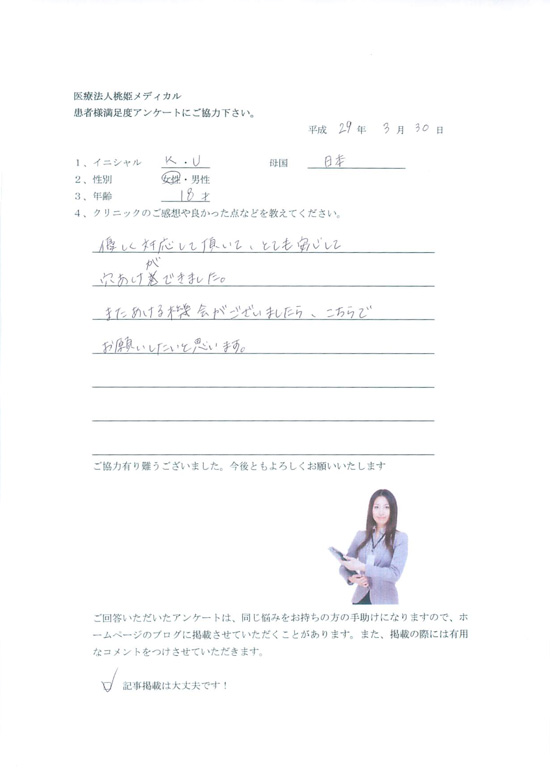 医療法人桃姫メディカル
患者様満足度アンケートにご協力下さい。
平成 29 年 3 月 30 日
1、イニシャル K・U 母国 日本
2、性別 女性・男性
3、年齢 18才
4、クリニックのご感想や良かった点などを教えてください。
優しく対応して頂いて、とても安心して
穴あけができました。
またあける機会がございましたら、こちらで
お願いしたいと思います。
ご協力有り難うございました。今後ともよろしくお願いいたします
ご回答いただいたアンケートは、同じ悩みをお持ちの方の手助けになりますので、ホ
ームページのブログに掲載させていただくことがあります。また、掲載の際には有用
なコメントをつけさせていただきます。
記事掲載は大丈夫です！